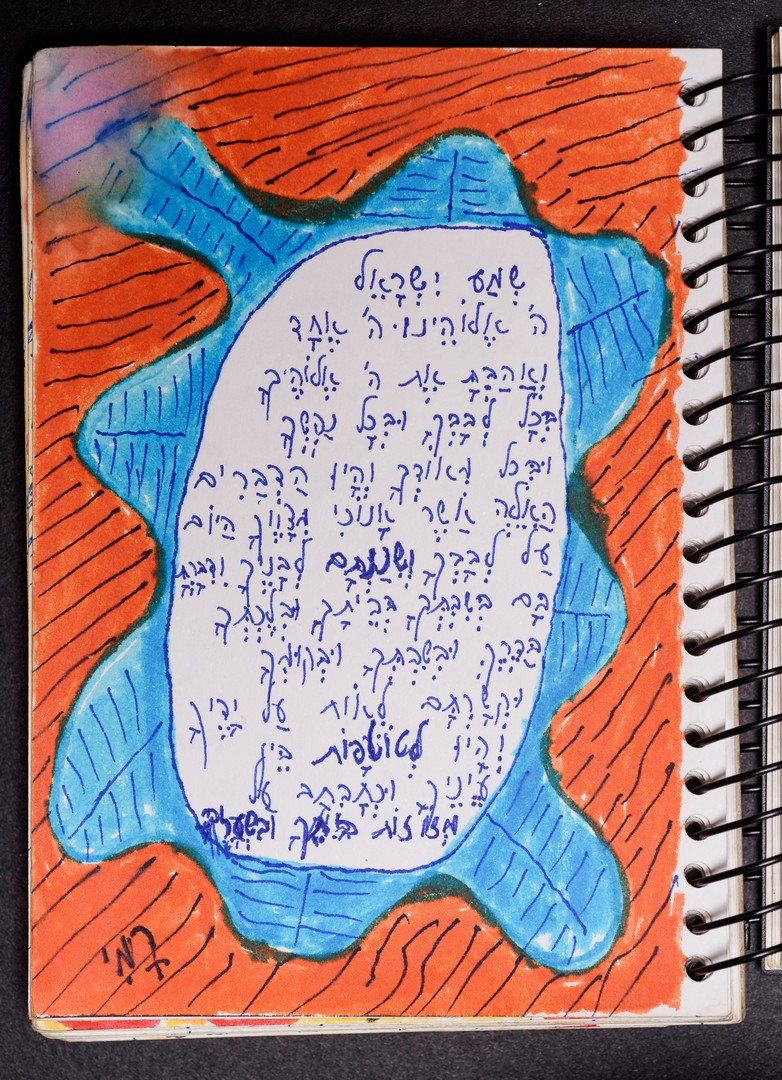 שְׁמַע יִשְׂרָאֵל
ה' אֱלוֹהֵינוּ ה' אֶחָד
וְאָהַבְתָּ אֶת ה' אֱלוֹהֶיךָ
בְּכָל לְבָבְךָ וּבְכָל נַפְשְׁךָ
וּבְכֹל מְאוֹדְךָ וְהָיוּ הַדְּבָרִים
הָאֵלֶּה אֲשֶׁר אָנוֹכִי מְצַוְּךָ הַיּוֹם
עַל לְבָבְךָ וְשִׁנַּנְתָּם לְבָנֶיךָ וְדִבַּרְתָּ
בָּם בְּשִׁבְתְּךָ בְּבֵיתְךָ וּבְלֶכְתְּךָ
בַּדֶּרֶךְ וּבְשָׁכְבְּךָ וּבְקוּמְךָ
וּקְשַׁרְתָּם לְאוֹת עַל יָדֶיךָ
וְהָיוּ לְטוֹטָפוֹת בֵּין
עֵינֶיךָ וּכְתַבְתָּם עַל
מְזוּזוֹת בֵּיתֶךָ וּבִשְׁעָרֶיךָ
רָמִי